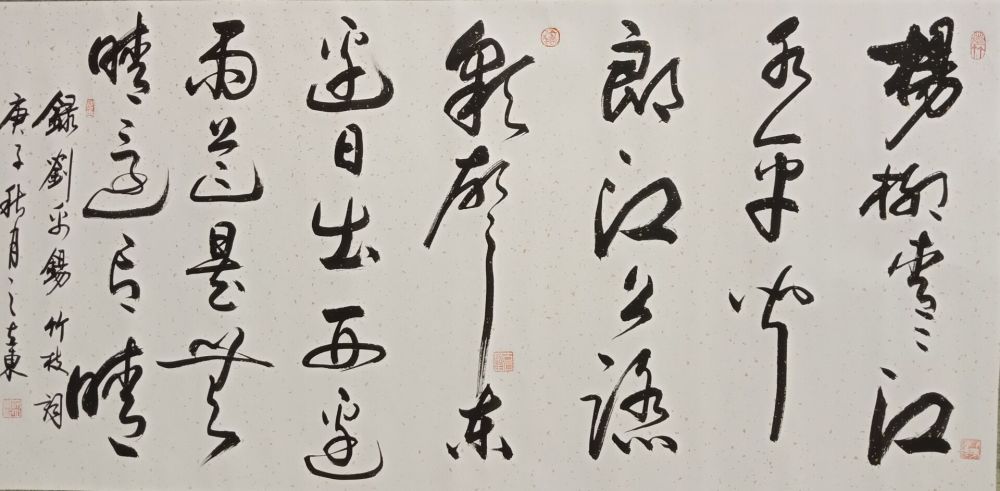 楊柳青々江
水平聞
郎江上踏
歌聲東
邊日出西邊
雨道是無
晴還有晴
録劉禹錫竹枝詞
庚子秋月